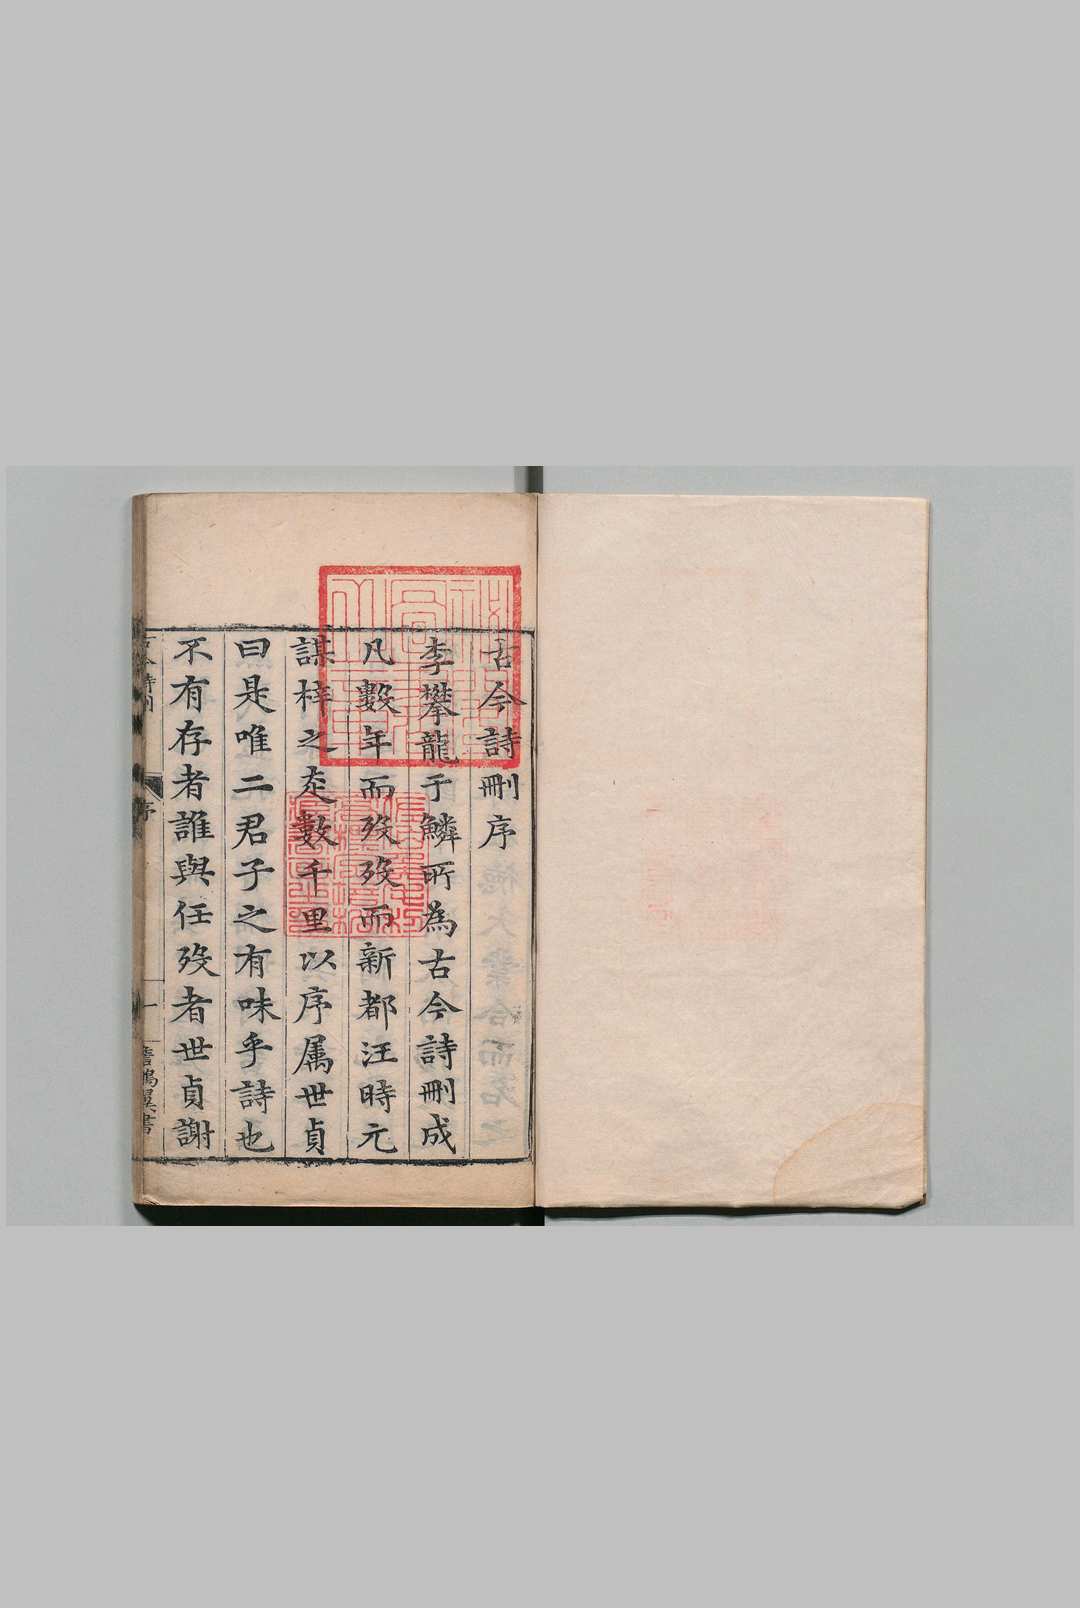 古今詩刪序
李攀龍于鱗所為古今詩刪成
凡數年而歿歿而新都汪時元
謀梓之走數千里以序属世貞
曰是唯二君子之有味乎詩也
不有存者誰與任歿者世貞謝
序
一